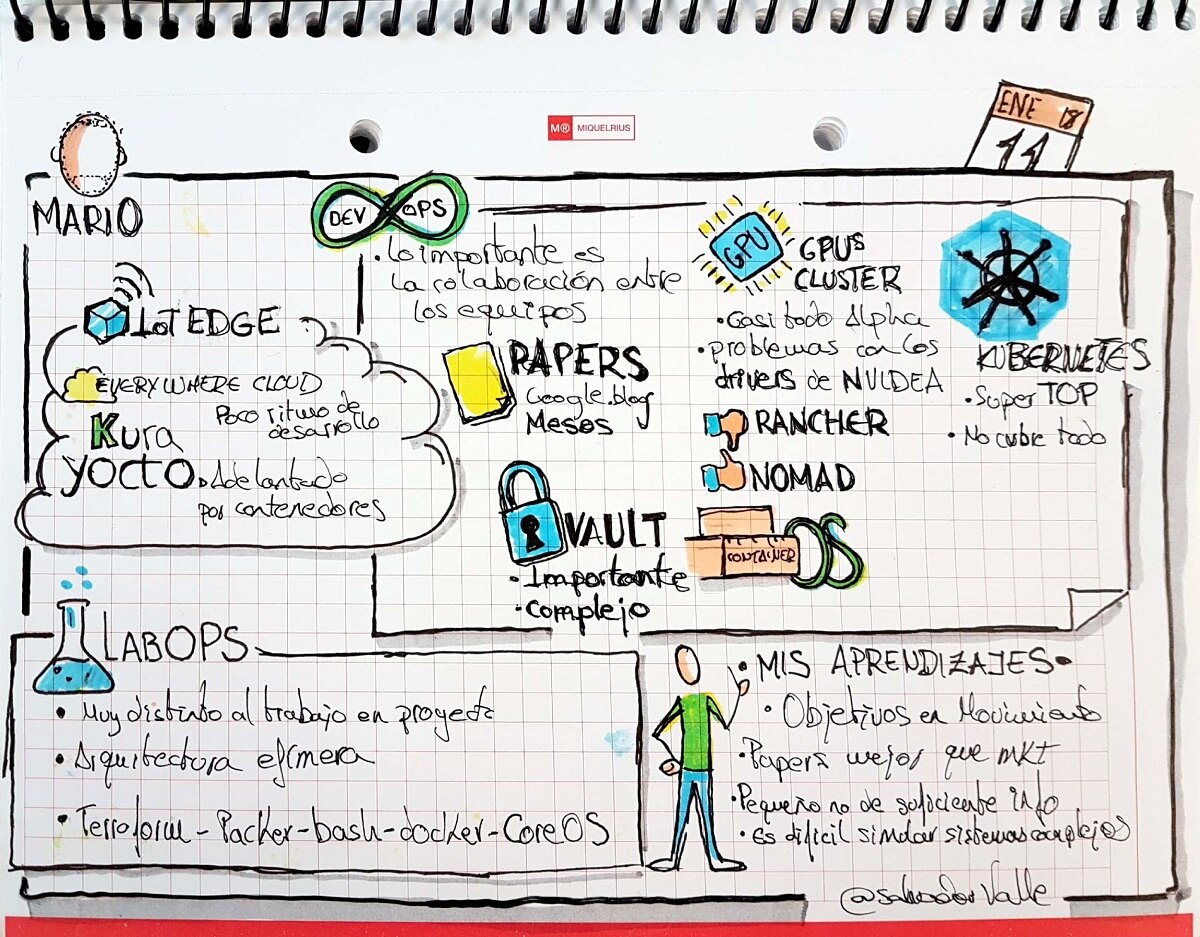 M® MIQUELRIUS
ENE 18
11
MARIO
DEV OPS
• Lo importante es
la colaboración entre
los equipos
IoT EDGE
EVERYWHERE CLOUD
Kura
Poco ritmo de
desarrollo
yocto • Adelantado
por contenedores
PAPERS
Google.blog
Mesos
VAULT
• Importante
• Complejo
GPU
GPUs
CLUSTER
• Casi todo Alpha
• problemas con los
drivers de NVIDEA
RANCHER
NOMAD
CONTAINER OS
KUBERNETES
• Super TOP
• No cubre todo
LABOPS
• Muy distinto al trabajo en proyecto
• Arquitectura efímera
• Terraform - Packer - bash - docker - CoreOS
• MIS APRENDIZAJES •
• Objetivos en Movimiento
• Papers mejor que MKT
• Pequeño no da suficiente info
• Es dificil simular sistemas complejos
@salvadorValle